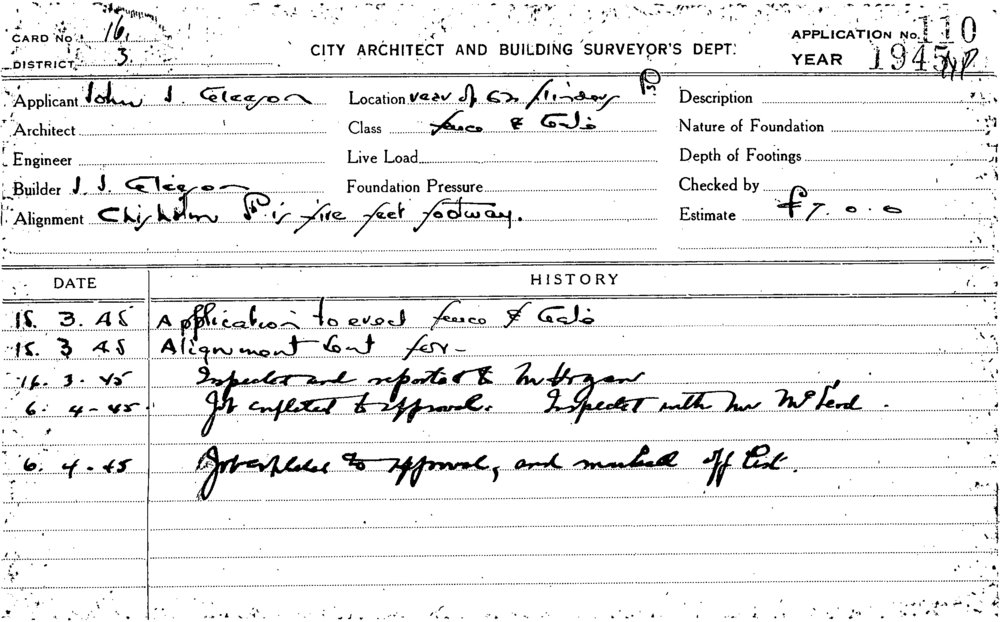 CARD No 16.
DISTRICT 3.
CITY ARCHITECT AND BUILDING SURVEYOR'S DEPT.
APPLICATION No. 110
YEAR 1945
Applicant John J. Gleeson
Location rear of 62 Flinders St
Description
Architect
Class fence & Gate
Nature of Foundation
Engineer
Live Load
Depth of Footings
Builder J. J. Gleeson
Foundation Pressure
Checked by
Alignment Chisholm St is five feet footway.
Estimate £7.0.0
DATE HISTORY
15. 3. 45 Application to erect fence & Gate
15. 3 45 Alignment sent for-
16. 3. 45 Inspected and reported to Mr Hogan
6. 4-45. Job completed to approval. Inspected with Mr McLeod.
6. 4-45 Job completed to approval, and marked off list.